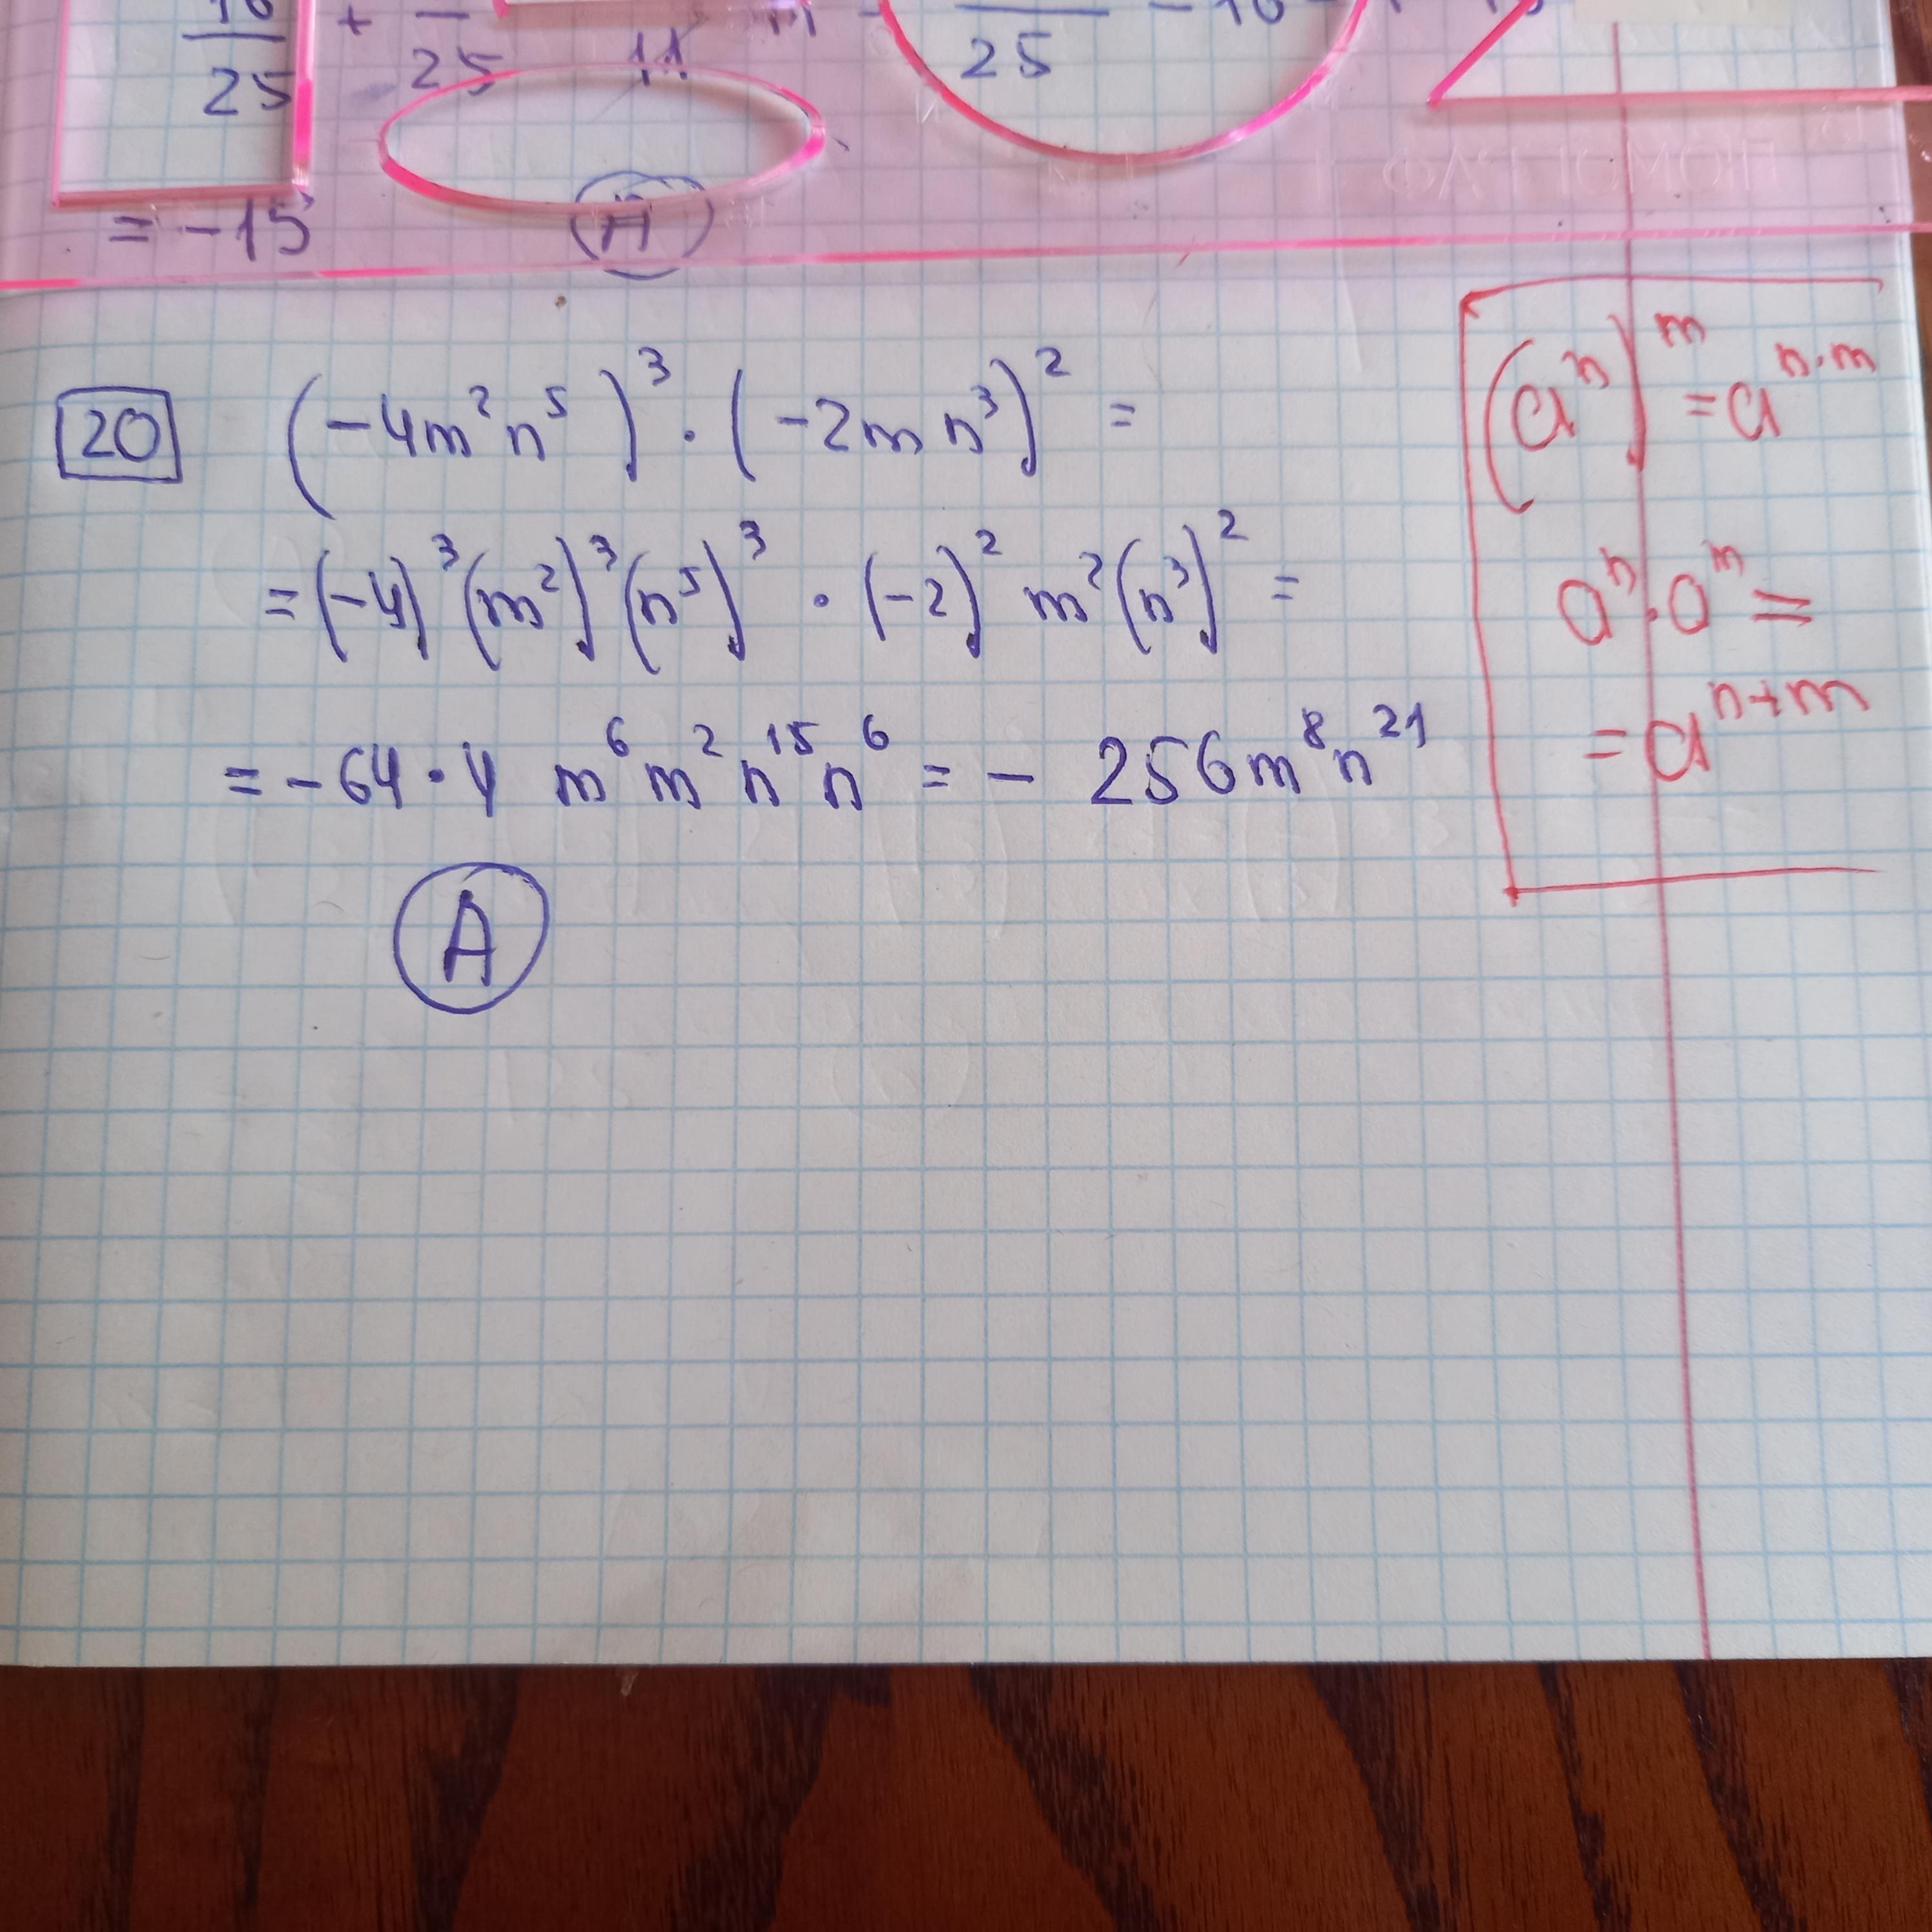 25 + 25 11 25
= -15 A
20 (-4m²n⁵)³ · (-2mn³)² =
= (-4)³(m²)³(n⁵)³ · (-2)² m²(n³)² =
= -64 · 4 m⁶m²n¹⁵n⁶ = - 256m⁸n²¹
A
(aⁿ)ᵐ = aⁿ·ᵐ
aⁿ · aᵐ =
= aⁿ⁺ᵐ